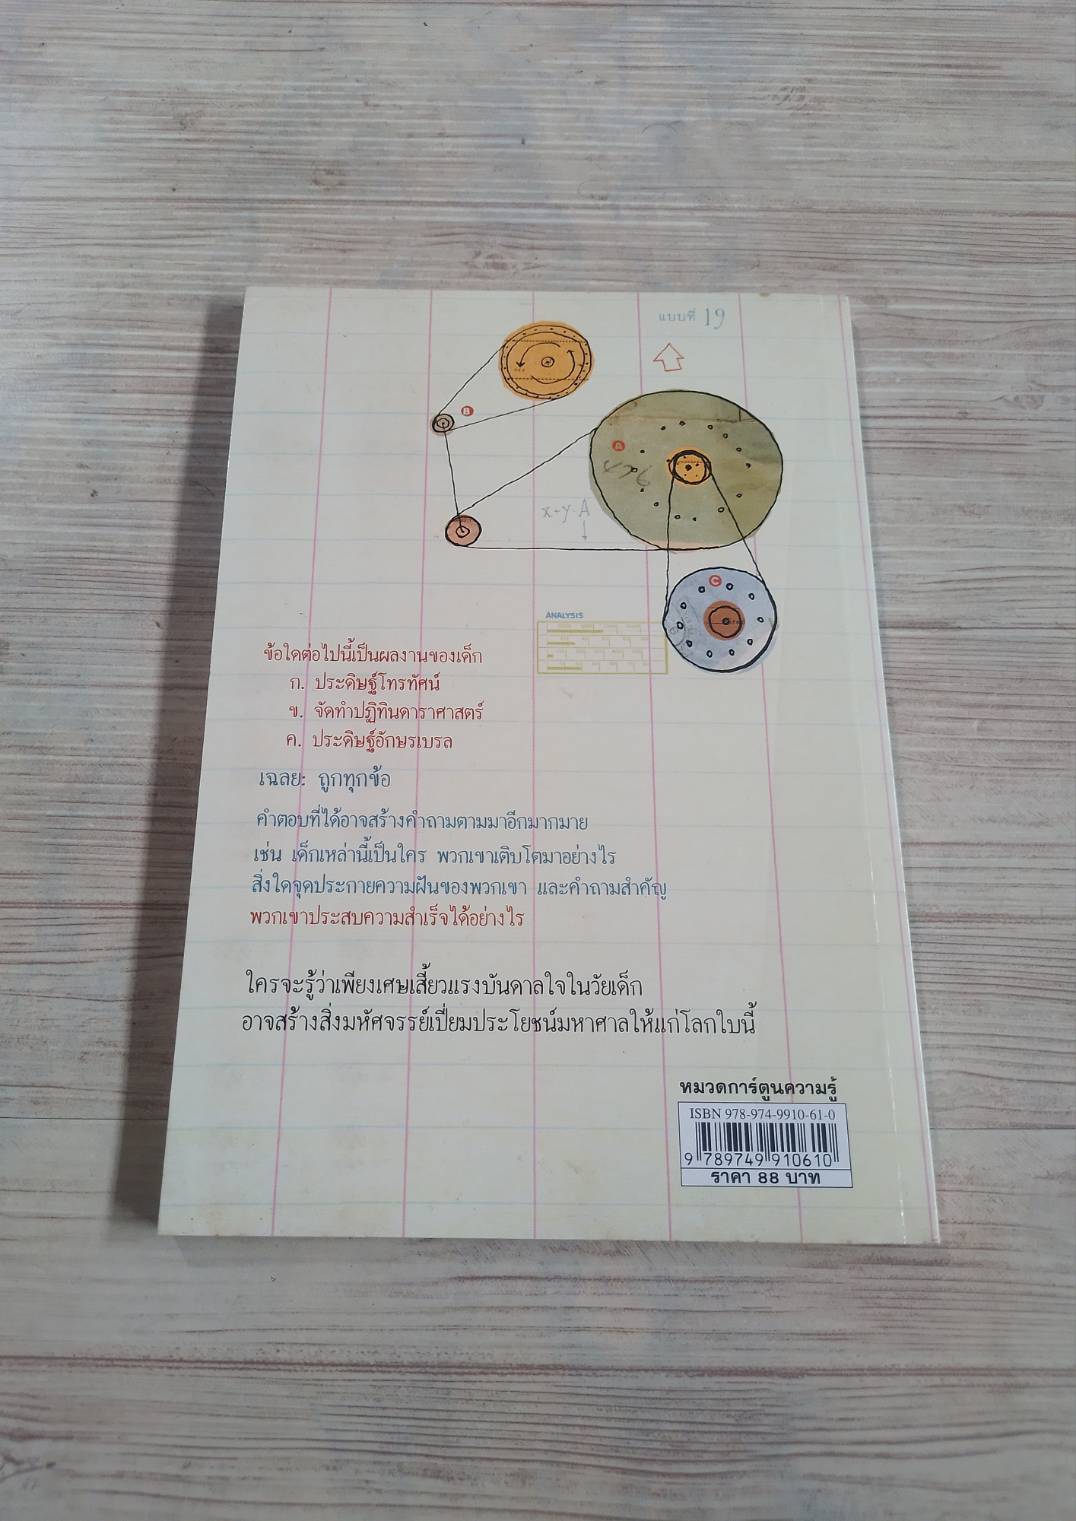 แบบที่ 19
B
A
476
x-y.A
C
ANALYSIS
ข้อใดต่อไปนี้เป็นผลงานของเด็ก
ก. ประดิษฐ์โทรทัศน์
ข. จัดทำปฏิทินดาราศาสตร์
ค. ประดิษฐ์อักษรเบรล
เฉลย: ถูกทุกข้อ
คำตอบที่ได้อาจสร้างคำถามตามมาอีกมากมาย
เช่น เด็กเหล่านี้เป็นใคร พวกเขาเติบโตมาอย่างไร
สิ่งใดจุดประกายความฝันของพวกเขา และคำถามสำคัญ
พวกเขาประสบความสำเร็จได้อย่างไร
ใครจะรู้ว่าเพียงเศษเสี้ยวแรงบันดาลใจในวัยเด็ก
อาจสร้างสิ่งมหัศจรรย์เปี่ยมประโยชน์มหาศาลให้แก่โลกใบนี้
หมวดการ์ตูนความรู้
ISBN 978-974-9910-61-0
9 789749 910610
ราคา 88 บาท